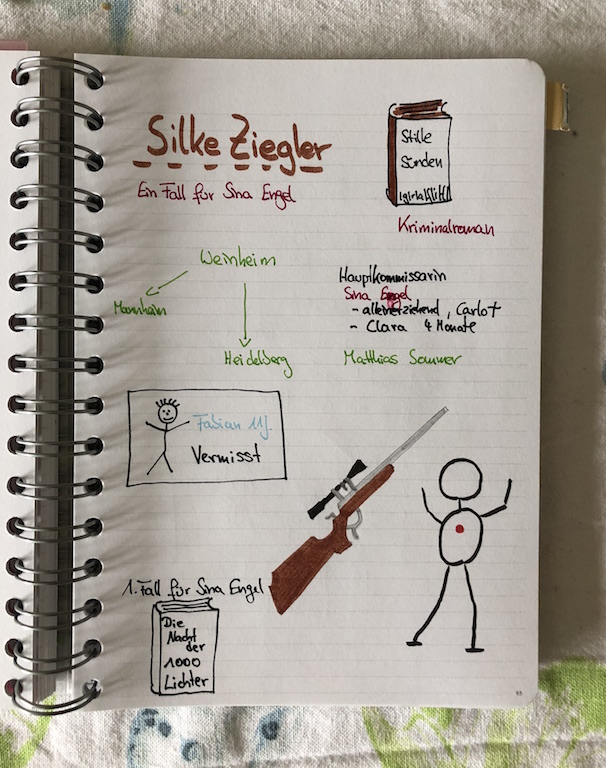 Silke Ziegler
Ein Fall für Sina Engel
Stille
Sünden
Kriminalroman
Weinheim
Mannheim
Heidelberg
Hauptkommissarin
Sina Engel
- alleinerziehend, Carlo †
- Clara 4 Monate
Matthias Sommer
Fabian 11J.
Vermisst
1. Fall für Sina Engel
Die
Nacht
der
1000
Lichter